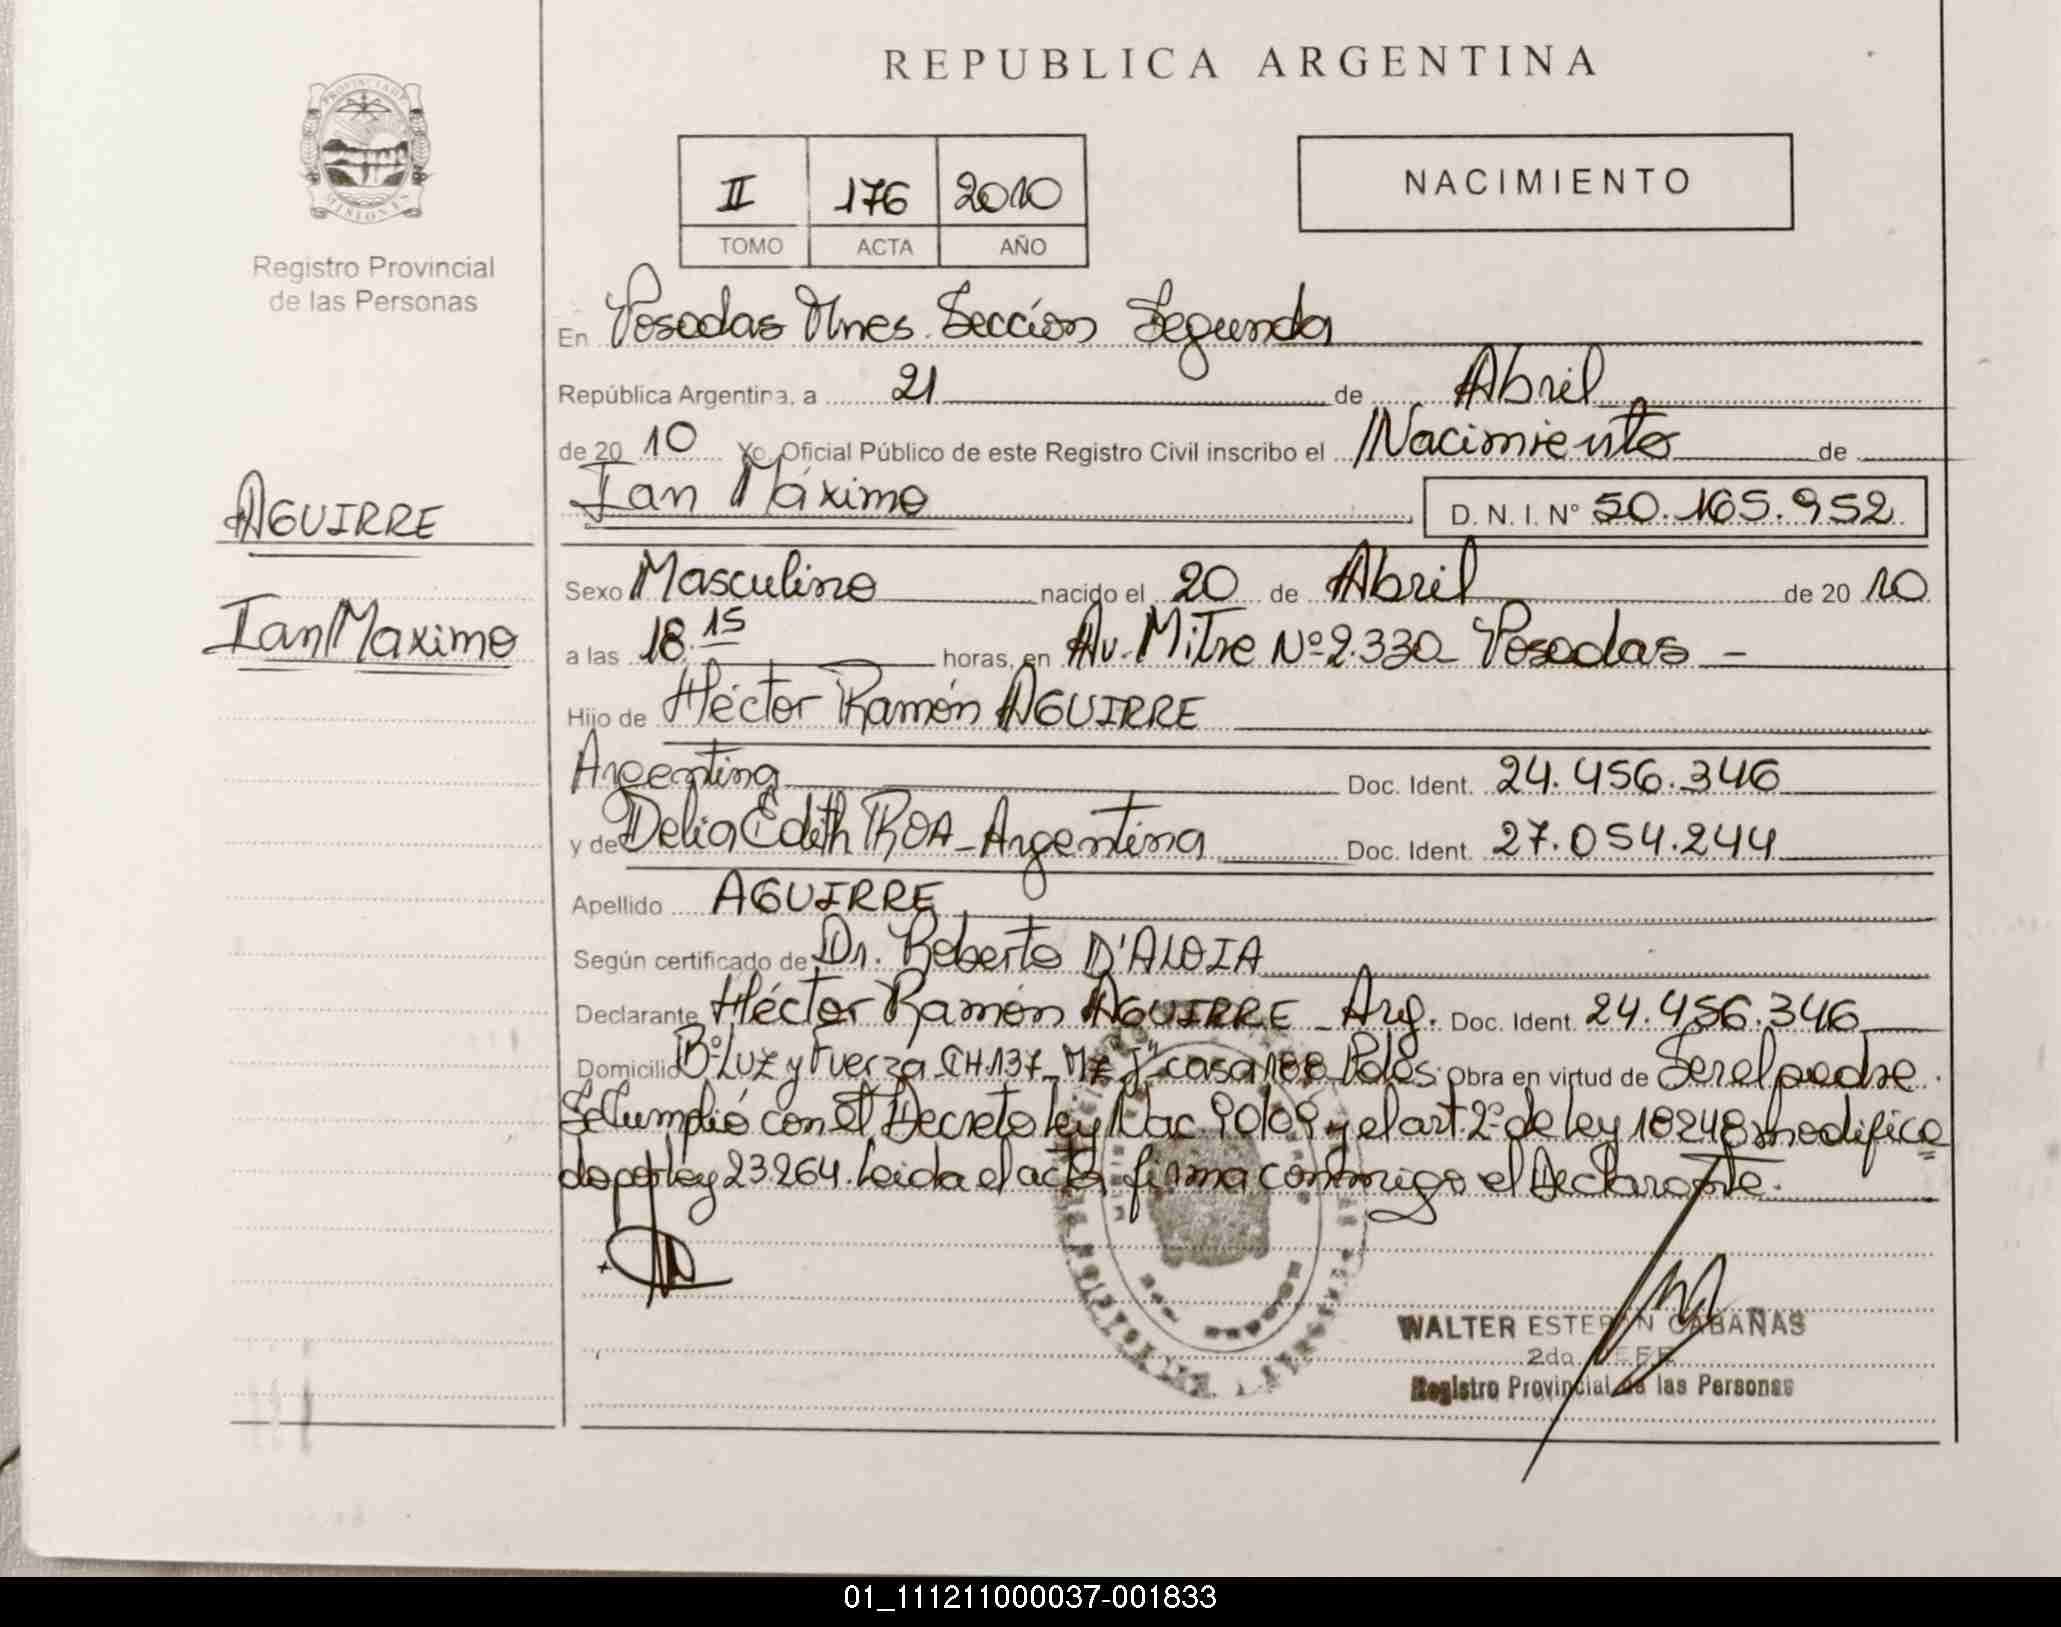 REPUBLICA ARGENTINA
PROVINCIA DE MISIONES
Registro Provincial
de las Personas
II 176 2010
TOMO ACTA AÑO
NACIMIENTO
En Posadas Mnes. Sección Segunda
República Argentina, a 21 de Abril
de 2010 Yo, Oficial Público de este Registro Civil inscribo el Nacimiento de
Ian Máximo D.N.I. Nº 50.165.952
AGUIRRE
Ian Maximo
Sexo Masculino nacido el 20 de Abril de 2010
a las 18.15 horas, en Av. Mitre Nº 2.330 Posadas -
Hijo de Héctor Ramón AGUIRRE
Argentina Doc. Ident. 24.456.346
y de Delia Edith ROA - Argentina Doc. Ident. 27.054.244
Apellido AGUIRRE
Según certificado de Dr. Roberto D'ALOIA
Declarante Héctor Ramón AGUIRRE - Arg. Doc. Ident. 24.456.346
Domicilio Bº Luz y Fuerza CH.137 Mz "J" casa Obra en virtud de Ser el padre.
Se Cumplió con el Decreto Ley Nac y el art. 2º de Ley 18248 modifica
do por Ley 23.264. Leida el acta, firma conmigo el Declarante.
WALTER ESTEBAN CABAÑAS
2do. JEFE
Registro Provincial de las Personas
01_111211000037-001833